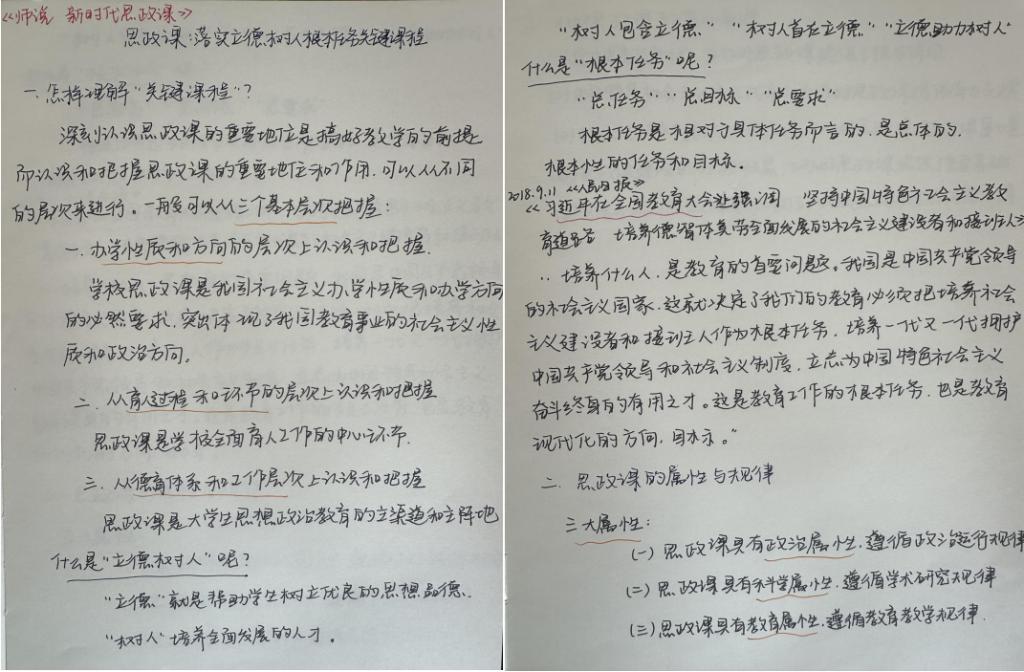 《师说 新时代思政课》
思政课:落实立德树人根本任务关键课程
一.怎样理解“关键课程”?
深刻认识思政课的重要地位是搞好教学的前提
而认识和把握思政课的重要地位和作用.可以从不同
的层次来进行。一般可以从三个基本层次把握:
一.办学性质和方向的层次上认识和把握.
学校思政课是我国社会主义办学性质和办学方向
的必然要求,突出体现了我国教育事业的社会主义性
质和政治方向.
二.从育人过程和环节的层次上认识和把握
思政课是学校全面育人工作的中心环节.
三.从德育体系和工作层次上认识和把握
思政课是大学生思想政治教育的主渠道和主阵地
什么是“立德树人”呢?
“立德”就是帮助学生树立优良的思想品德.
“树人”培养全面发展的人才。
“树人包含立德”“树人首在立德”“立德助力树人”
什么是“根本任务”呢?
“总任务”“总目标”“总要求”
根本任务是相对于具体任务而言的.是总体的.
根本性的任务和目标.
2018.9.11《人民日报》
《习近平在全国教育大会上强调 坚持中国特色社会主义教
育道路 培养德智体美劳全面发展的社会主义建设者和接班人》
：培养什么人.是教育的首要问题。我国是中国共产党领导
的社会主义国家.这就决定了我们的教育必须把培养社会
主义建设者和接班人作为根本任务.培养一代又一代拥护
中国共产党领导和社会主义制度.立志为中国特色社会主义
奋斗终身的有用之才。这是教育工作的根本任务.也是教育
现代化的方向.目标。”
二.思政课的属性与规律
三大属性:
(一)思政课具有政治属性.遵循政治运行规律
(二)思政课具有科学属性.遵循学术研究规律
(三)思政课具有教育属性.遵循教育教学规律.